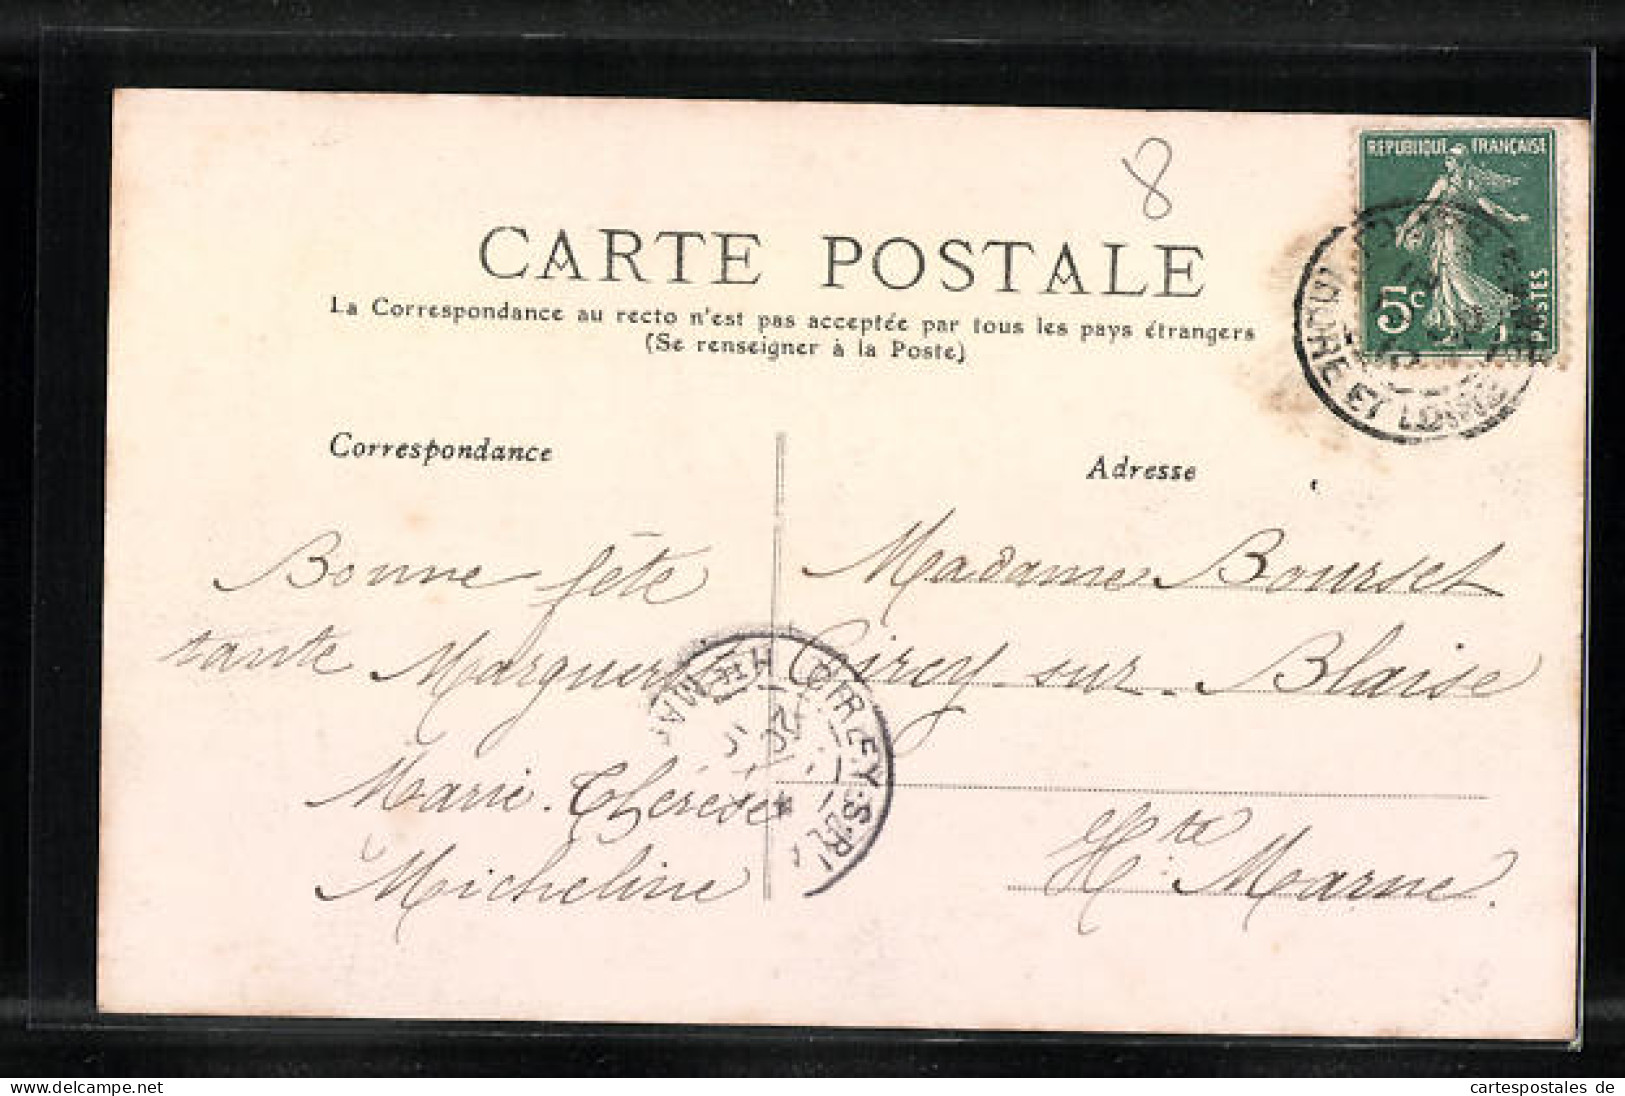 8
REPUBLIQUE FRANÇAISE
5c
POSTES
CARTE POSTALE
La Correspondance au recto n'est pas acceptée par tous les pays étrangers
(Se renseigner à la Poste)
ET LOIRE
Correspondance
Adresse
Bonne fête
tante Marguerite
Marie-Thérèse
Micheline
CIREY-S-BL
Hte MARNE
Madame Bourset
Cirey-sur-Blaise
Hte Marne.
cartespostales de